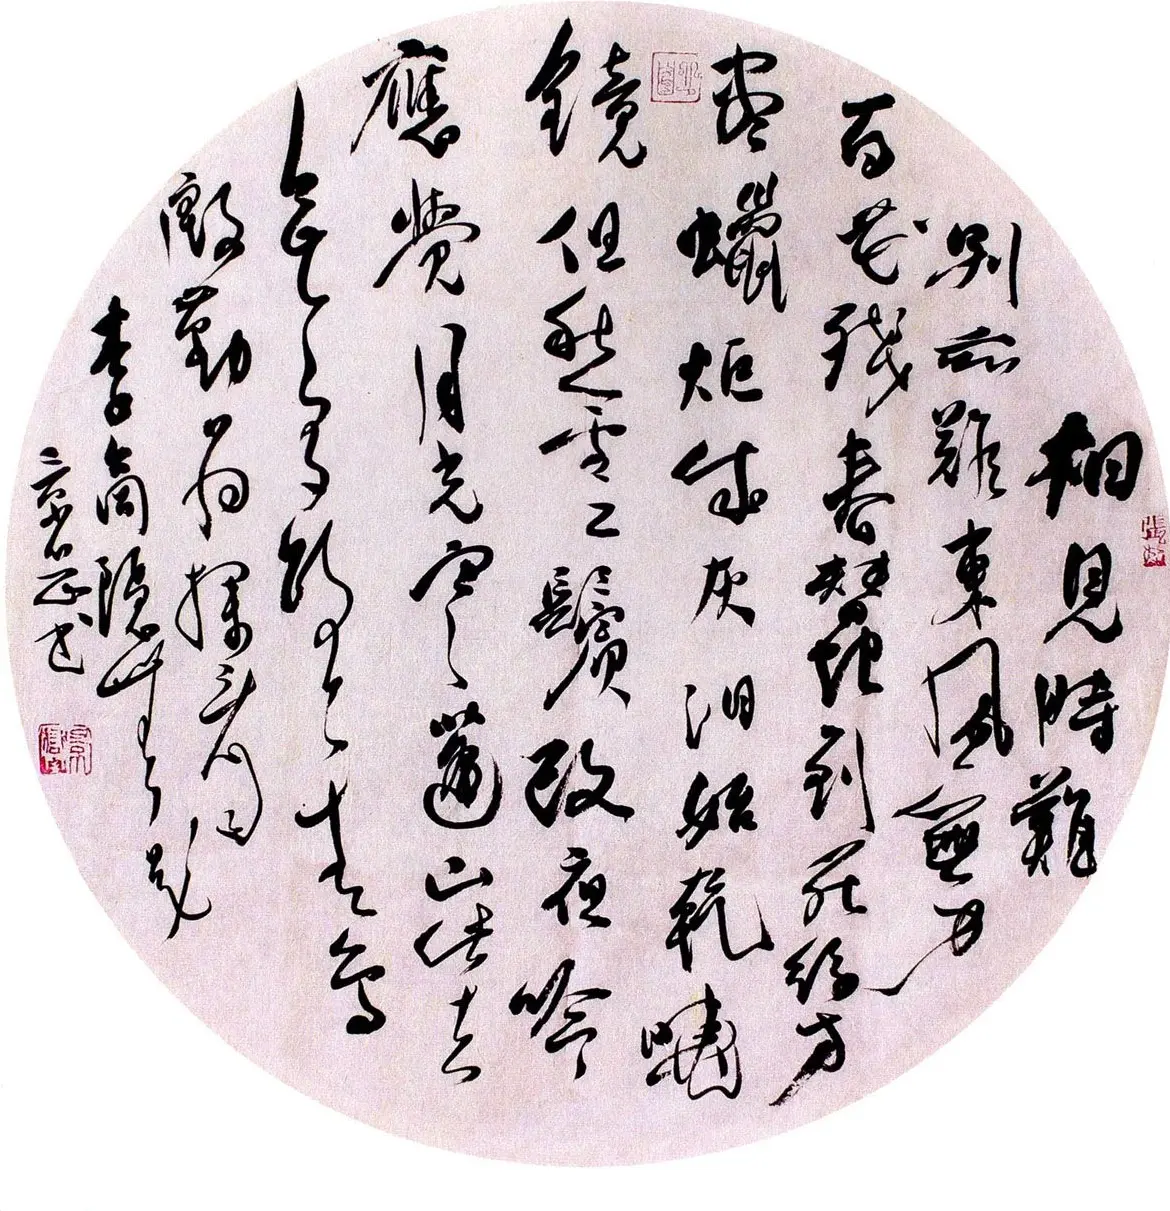 相見時難
別亦難東風無力
百花殘春蠶到死絲方
盡蠟炬成灰泪始乾曉
鏡但愁雲鬢改夜吟
應覺月光寒蓬山此去
無多路青鳥
殷勤為探看
李商隱